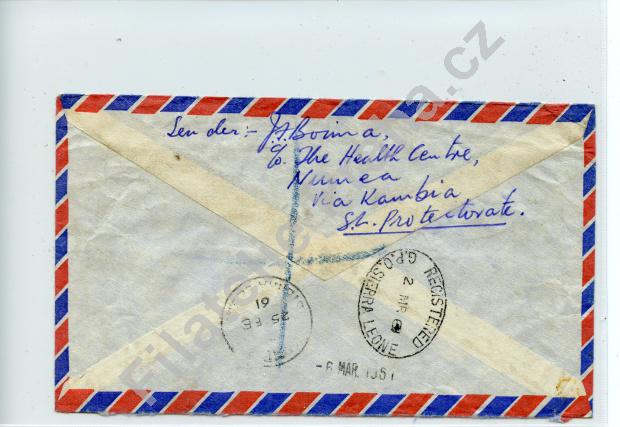 Sender:- J.S. Boima,
c/o The Health Centre,
Numea
Via Kambia
S.L. Protectorate.
REGISTERED
G.P.O. SIERRA LEONE
2 MR 61
25 FE
61
- 6 MAR 1961
Filatelie-ena.cz